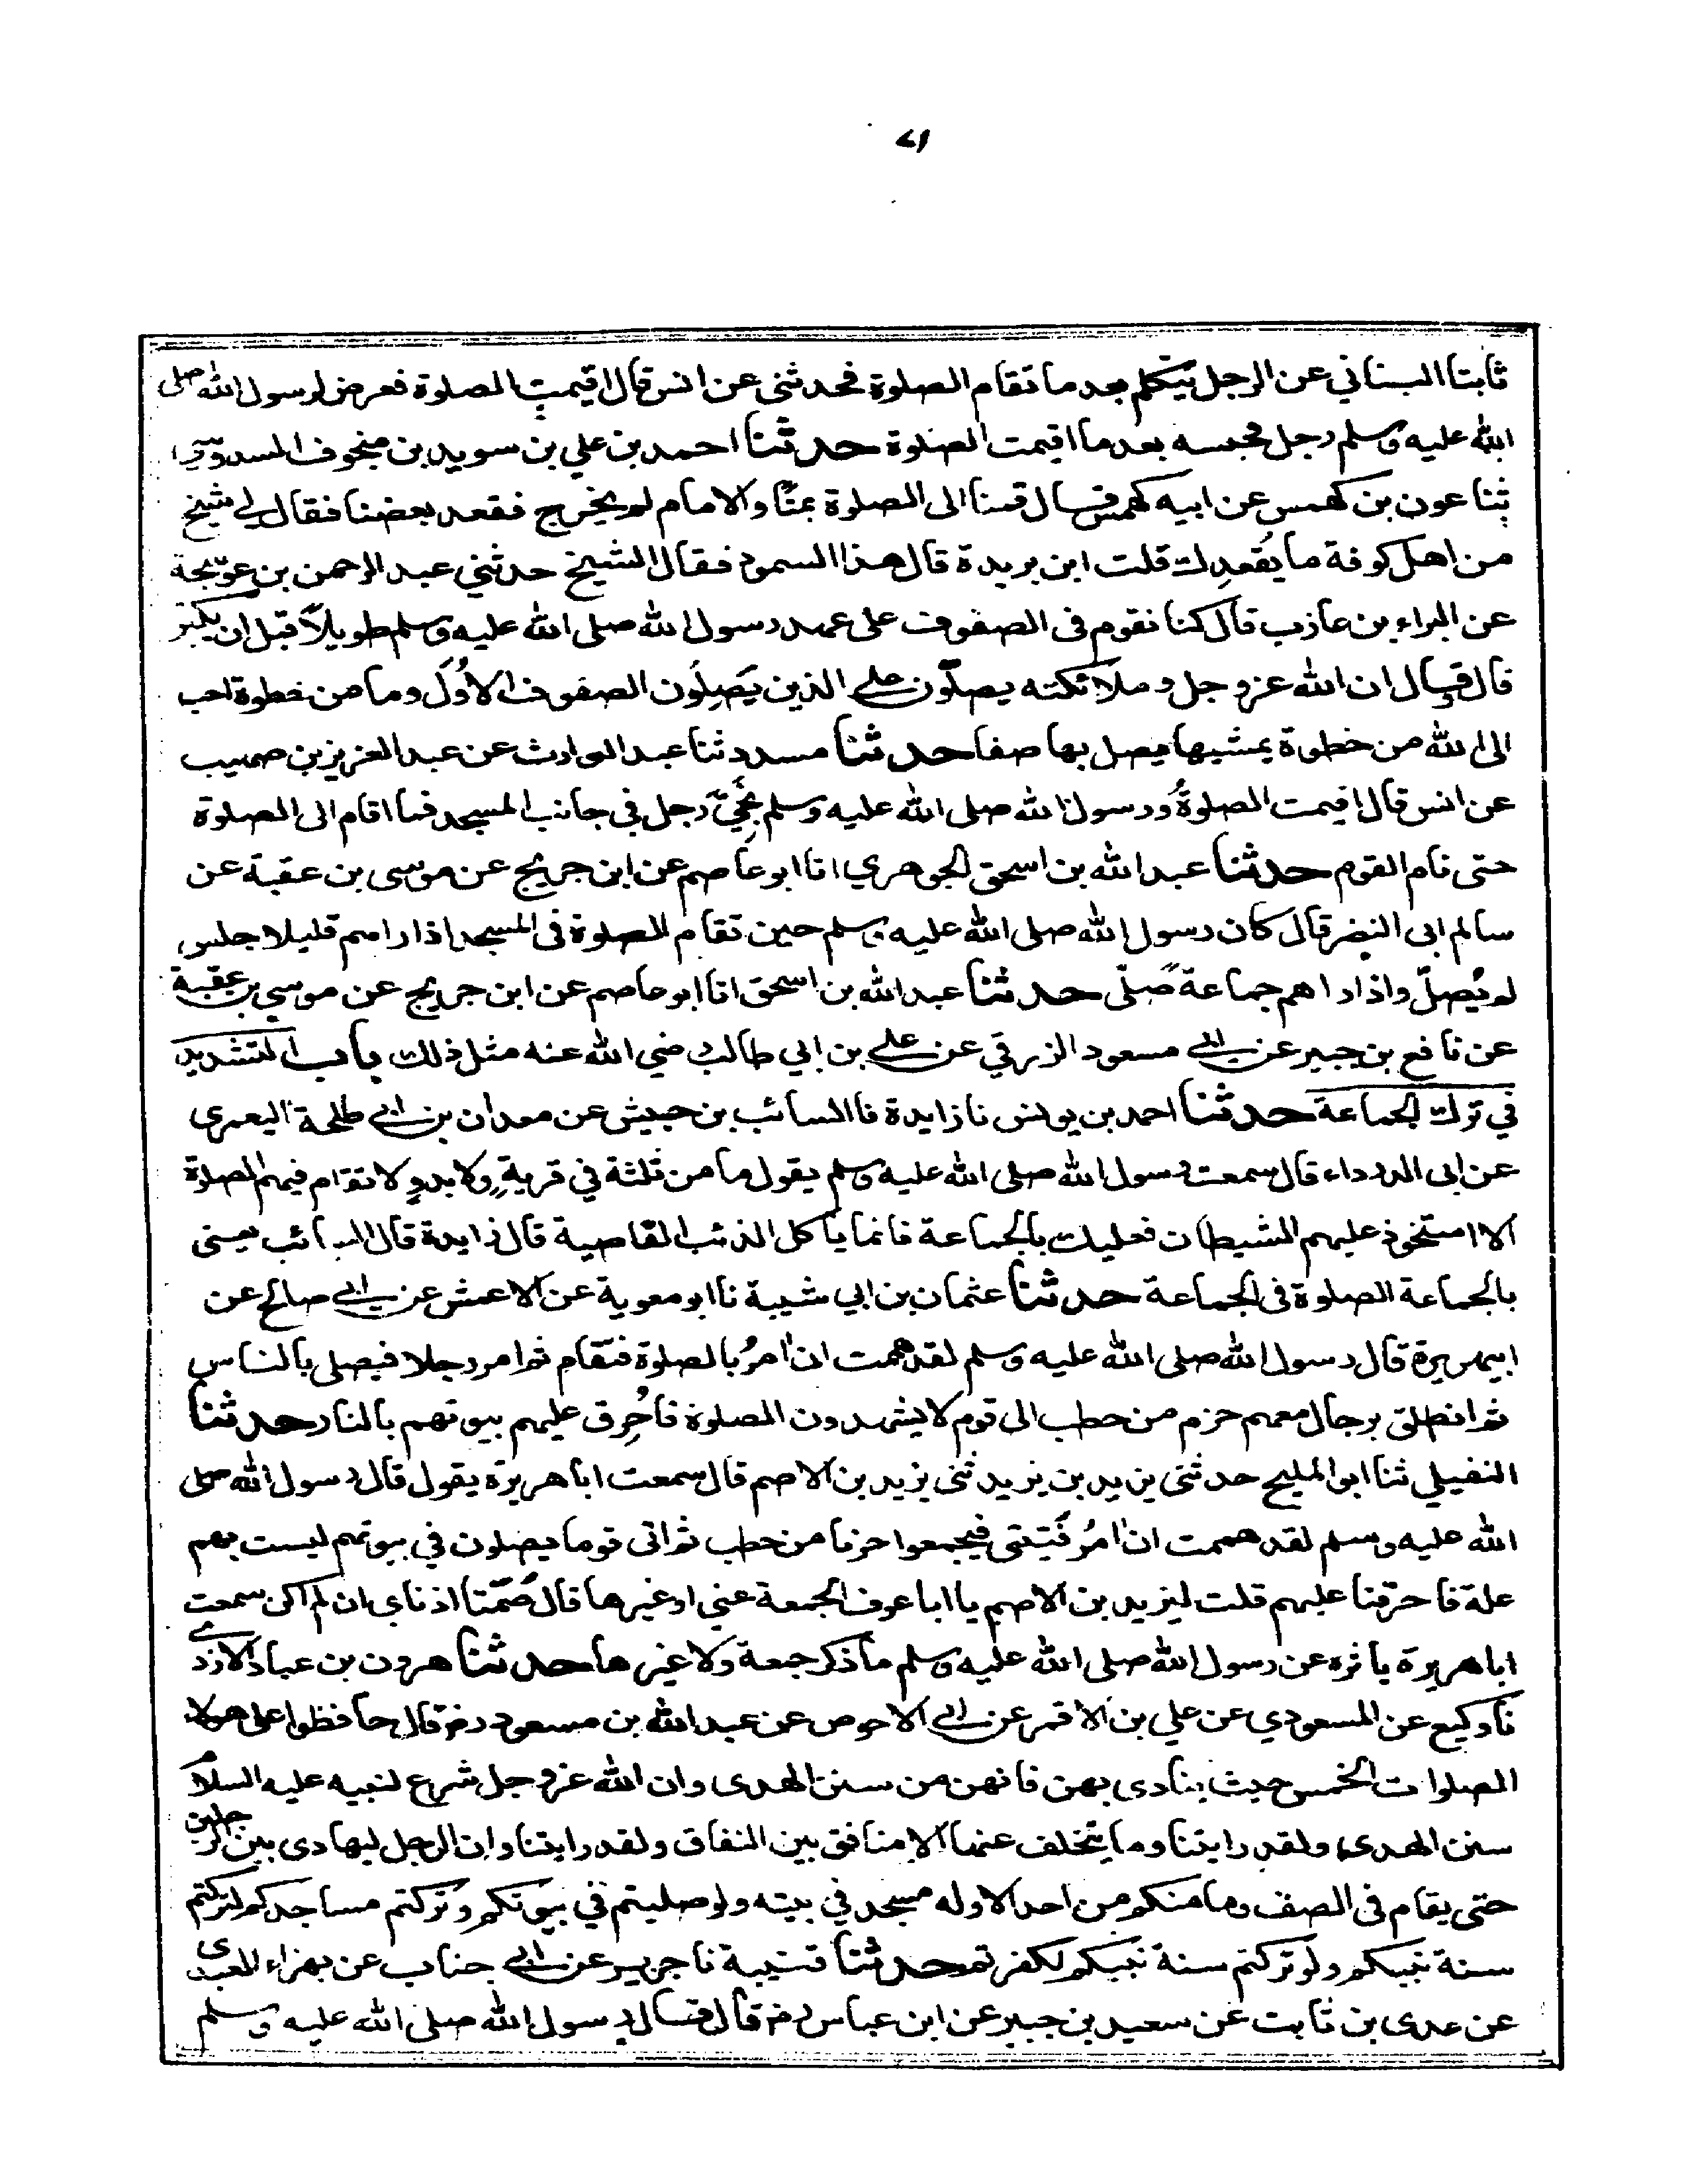 ٧١
ثابتا البناني عن الرجل يتكلم بعد ما تقام الصلوة فحدثنى عن انس قال اقيمت الصلوة فعرض لرسول الله صلى
الله عليه وسلم رجل فحبسه بعد ما اقيمت الصلوة حدثنا احمد بن علي بن سويد بن منجوف السدوسي
ثنا عون بن كهمس عن ابيه كهمس قال قمنا الى الصلوة بمنًا والامام لم يخرج فقعد بعضنا فقال لي شيخ
من اهل كوفة ما يُقعدك قلت ابن بريدة قال هذا السمود فقال الشيخ حدثني عبد الرحمن بن عوسجة
عن البراء بن عازب قال كنا نقوم فى الصفوف على عهد رسول الله صلى الله عليه وسلم طويلاً قبل ان يكبر
قال قال ان الله عز وجل وملائكته يصلّون على الذين يَصِلُون الصفوف الاُوَل وما من خطوة احب
الى الله من خطوة يمشيها يصل بها صفا حدثنا مسدد ثنا عبد الوارث عن عبد العزيز بن صهيب
عن انس قال اقيمت الصلوةُ ورسول الله صلى الله عليه وسلم نجيّ رجل في جانب المسجد فما اقام الى الصلوة
حتى نام القوم حدثنا عبد الله بن اسحق الجوهري انا ابو عاصم عن ابن جريج عن موسى بن عقبة عن
سالم ابى النضر قال كان رسول الله صلى الله عليه وسلم حين تقام الصلوة فى المسجد اذا راهم قليلا جلس
لم يُصلّ واذا راهم جماعة صلّى حدثنا عبد الله بن اسحق انا ابو عاصم عن ابن جريج عن موسي بن عقبة
عن نافع بن جبير عن ابي مسعود الزرقي عن علي بن ابي طالب رضي الله عنه مثل ذلك باب التشديد
في ترك الجماعة حدثنا احمد بن يونس نا زايدة نا السائب بن حبيش عن معدان بن ابي طلحة اليعمرى
عن ابى الدرداء قال سمعت رسول الله صلى الله عليه وسلم يقول ما من ثلثة في قرية ولا بدوٍ لا تقام فيهم الصلوة
الا استحوذ عليهم الشيطان فعليك بالجماعة فانما ياكل الذئب القاصية قال زايدة قال السائب يعنى
بالجماعة الصلوة فى الجماعة حدثنا عثمان بن ابي شيبة نا ابو معوية عن الاعمش عن ابي صالح عن
ابيهريرة قال رسول الله صلى الله عليه وسلم لقد هممت ان اٰمرُ بالصلوة فتقام ثم امر رجلا فيصلى بالناس
ثم انطلق برجال معهم حزم من حطب الى قوم لا يشهدون الصلوة فاُحرِق عليهم بيوتهم بالنار حدثنا
النفيلي ثنا ابو المليح حدثنى يزيد بن يزيد ثنى يزيد بن الاصم قال سمعت ابا هريرة يقول قال رسول الله صلى
الله عليه وسلم لقد هممت ان اٰمُر فتيتى فيجمعوا حزما من حطب ثم اتى قوما يصلون في بيوتهم ليست بهم
علة فاحرّقها عليهم قلت ليزيد بن الاصم يا ابا عوف الجمعة عني او غيرها قال صُمّتا اذناي ان لم اكن سمعت
ابا هريرة ياثره عن رسول الله صلى الله عليه وسلم ما ذكر جمعة ولا غيرها حدثنا هرون بن عباد الازدي
نا وكيع عن المسعودي عن علي بن الاقمر عن ابي الاحوص عن عبد الله بن مسعود رض قال حافظوا على هولاء
الصلوات الخمس حيث ينادى بهن فانهن من سنن الهدى وان الله عز وجل شرع لنبيه عليه السلام
سنن الهدى ولقد رايتنا وما يتخلف عنها الا منافق بين النفاق ولقد رايتنا وان الرجل ليهادى بين الرجلين
حتى يقام فى الصف وما منكم من احد الا وله مسجد في بيته ولو صليتم في بيوتكم وتركتم مساجدكم لتركتم
سنة نبيكم ولو تركتم سنة نبيكم لكفرتم حدثنا قتيبة نا جرير عن ابي جناب عن مغراء العبدى
عن عدى بن ثابت عن سعيد بن جبير عن ابن عباس رض قال قال رسول الله صلى الله عليه وسلم